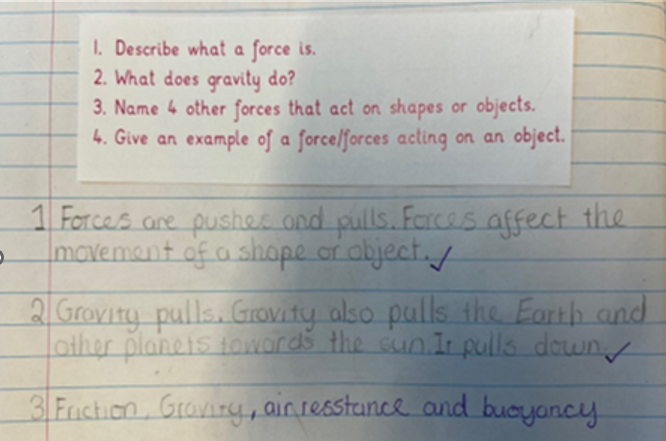 1. Describe what a force is.
2. What does gravity do?
3. Name 4 other forces that act on shapes or objects.
4. Give an example of a force/forces acting on an object.
1 Forces are pushes and pulls. Forces affect the
movement of a shape or object. ✓
2 Gravity pulls. Gravity also pulls the Earth and
other planets towards the sun. It pulls down. ✓
3 Friction, Gravity, air resstance and buoyancy